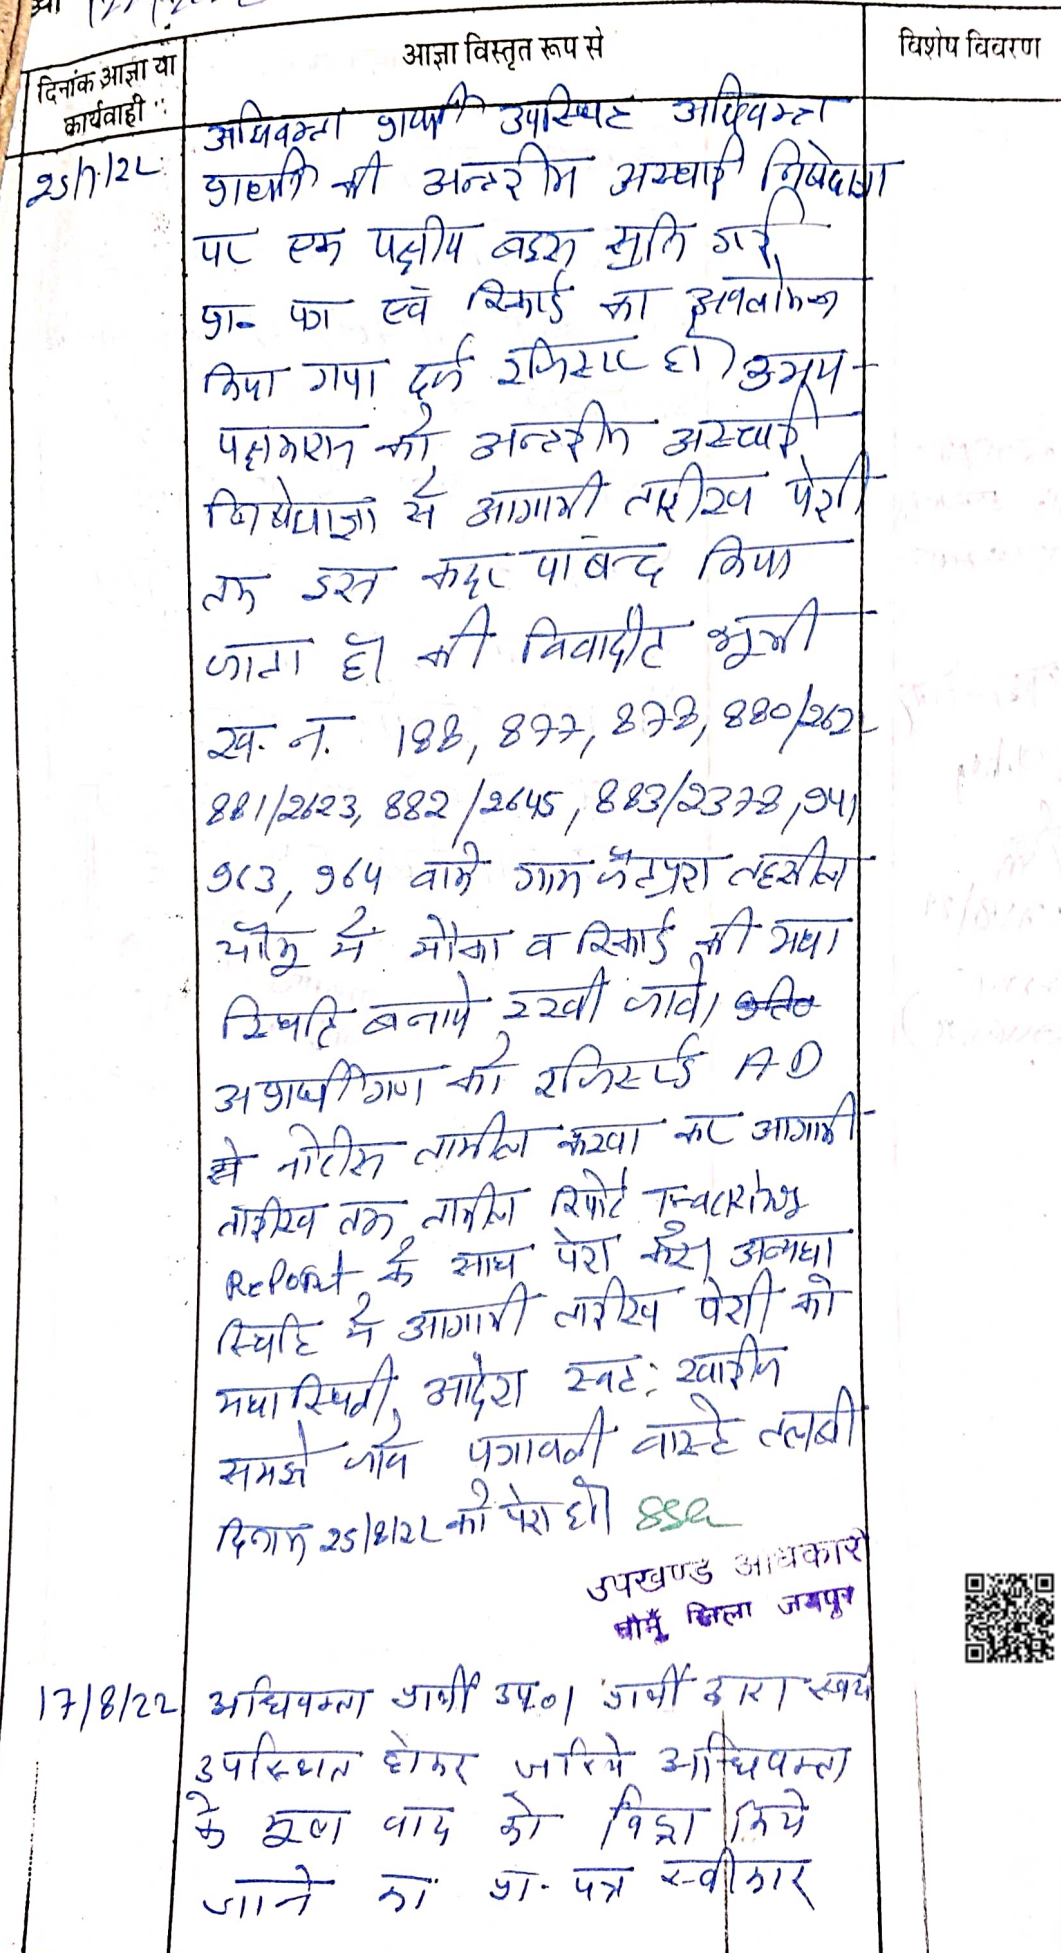 दिनांक आज्ञा या
कार्यवाही
आज्ञा विस्तृत रूप से
विशेष विवरण
25/7/22
अधिवक्ता प्रार्थी उपस्थित अधिवक्ता
प्रार्थी की अन्तरीम अस्थाई निषेधाज्ञा
पर एक पक्षीय बहस सुनि गई
प्रा॰ पत्र एवं रिकार्ड का अवलोकन
किया गया दर्ज रजिस्टर हो। उभय-
पक्षकारान को अन्तरीम अस्थाई
निषेधाज्ञा से आगामी तारीख पेशी
तक इस कदर पाबंन्द किया
जाता है। की विवादीत भूमी
ख. न. 188, 877, 878, 880/2622
881/2623, 882/2645, 883/2378, 941
963, 964 वाके ग्राम तहसील
चौमू में मौका व रिकार्ड की यथा
स्थिति बनाये रखी जावे।
अप्रार्थीगण को रजिस्टर्ड AD
से नोटीस तामील करवा कर आगामी
तारीख तक तामील रिपोर्ट
Report के साथ पेश करें। अन्यथा
स्थिति में आगामी तारीख पेशी को
यथास्थिती आदेश स्वत: खारीज
समझे जावे पत्रावली वास्ते तलबी
दिनांक 25/8/22 को पेश हो।
उपखण्ड अधिकारी
चौमूँ जिला जयपुर
17/8/22
अधिवक्ता प्रार्थी उप०। प्रार्थी द्वारा स्वयं
उपस्थित होकर जरिये अधिवक्ता
के मूल वाद को विड्रा किये
जाने का प्रा. पत्र स्वीकार